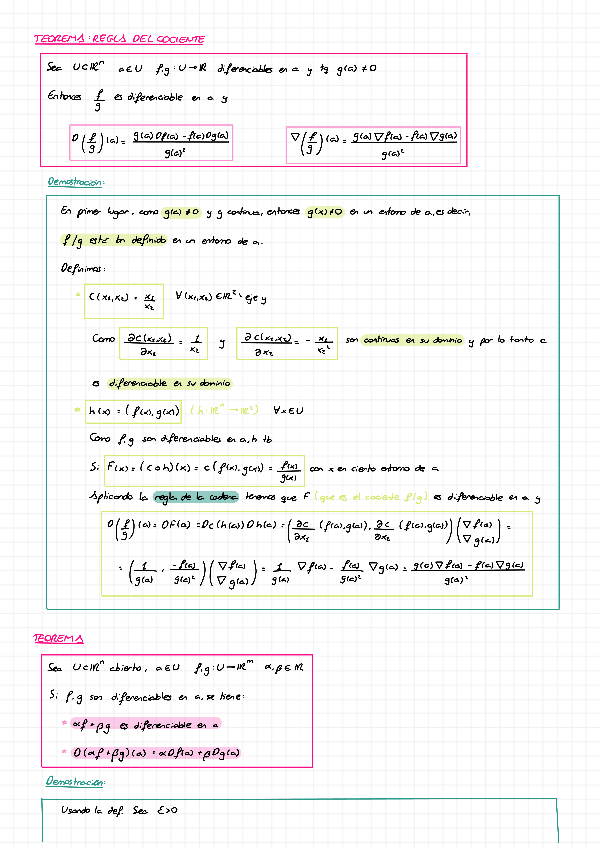 TEOREMA: REGLA DEL COCIENTE
Sea U⊂ℝⁿ a∈U f,g: U→ℝ diferenciables en a y tq g(a)≠0
Entonces f/g es diferenciable en a y
D(f/g)(a) = (g(a)Df(a) - f(a)Dg(a))/g(a)² ∇(f/g)(a) = (g(a)∇f(a) - f(a)∇g(a))/g(a)²
Demostración:
En primer lugar, como g(a)≠0 y g continua, entonces g(x)≠0 en un entorno de a, es decir,
f/g está bn definido en un entorno de a.
Definimos:
* C(x₁,x₂) = x₁/x₂ ∀(x₁,x₂)∈ℝ²\ eje y
Como ∂C(x₁,x₂)/∂x₁ = 1/x₂ y ∂C(x₁,x₂)/∂x₂ = - x₁/x₂² son continuas en su dominio y por lo tanto c
es diferenciable en su dominio
* h(x) = (f(x),g(x)) (h: ℝⁿ→ℝ²) ∀x∈U
Como f,g son diferenciables en a, h tb
Si F(x) = (c∘h)(x) = c(f(x),g(x)) = f(x)/g(x) con x en cierto entorno de a
Aplicando la regla de la cadena tenemos que F (que es el cociente f/g) es diferenciable en a y
D(f/g)(a) = DF(a) = Dc(h(a))Dh(a) = (∂c/∂x₁ (f(a),g(a)), ∂c/∂x₂ (f(a),g(a))) (∇f(a) ∇g(a)) =
= (1/g(a), -f(a)/g(a)²) (∇f(a) ∇g(a)) = 1/g(a) ∇f(a) - f(a)/g(a)² ∇g(a) = (g(a)∇f(a) - f(a)∇g(a))/g(a)²
TEOREMA
Sea U⊂ℝⁿ abierto, a∈U f,g: U→ℝᵐ α,β∈ℝ
Si f,g son diferenciables en a, se tiene:
* αf+βg es diferenciable en a
* D(αf+βg)(a) = αDf(a) + βDg(a)
Demostración:
Usando la def. Sea ε>0